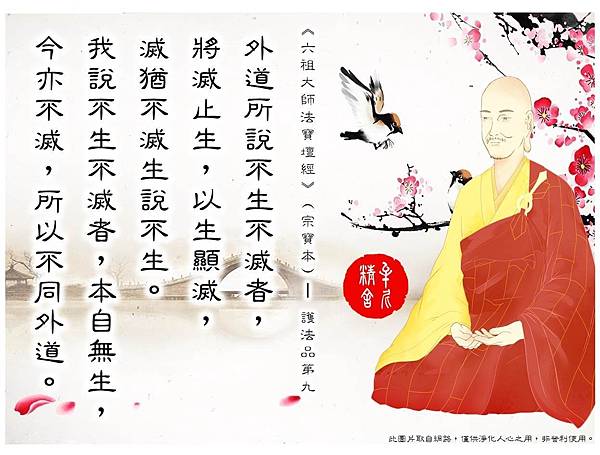 《六祖大師法寶壇經》（宗寶本）— 護法品第九
外道所說不生不滅者，
將滅止生，以生顯滅，
滅猶不滅生說不生。
我說不生不滅者，本自無生，
今亦不滅，所以不同外道。
精舍
此圖片取自網路，僅供淨化人心之用，非營利使用。